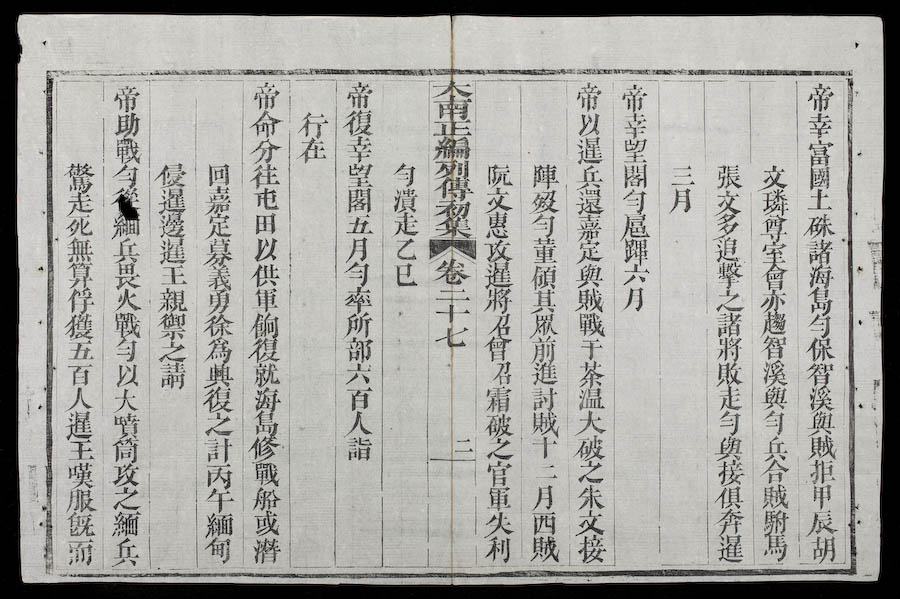 帝幸富國土硃諸海島勻保智溪與賊拒甲辰胡
文璘尊室會亦趨智溪與勻兵合賊駙馬
張文多追擊之諸將敗走勻與接俱奔暹
三月
帝幸望閣勻扈蹕六月
帝以暹兵還嘉定與賊戰于茶温大破之朱文接
陣歿勻董領其眾前進討賊十二月西賊
阮文惠攻暹將召曾召霜破之官軍失利
勻潰走乙巳
大南正編列傳初集 卷二十七 二
帝復幸望閣五月勻率所部六百人詣
行在
帝命分往屯田以供軍餉復就海島修戰船或潛
回嘉定募義勇徐為興復之計丙午緬甸
侵暹邊暹王親禦之請
帝助戰勻從緬兵畏火戰勻以大噴筒攻之緬兵
驚走死無算俘獲五百人暹王嘆服旣而